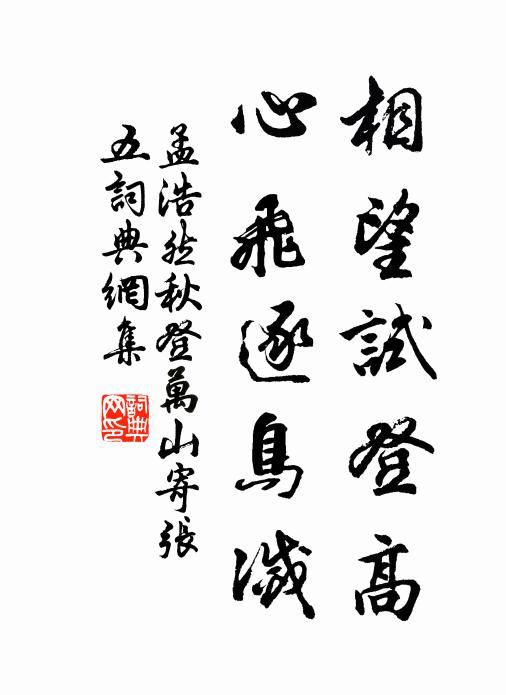 相望試登高
心飛逐鳥滅
孟浩然秋登萬山寄張
五詞典網集
詞典
网印